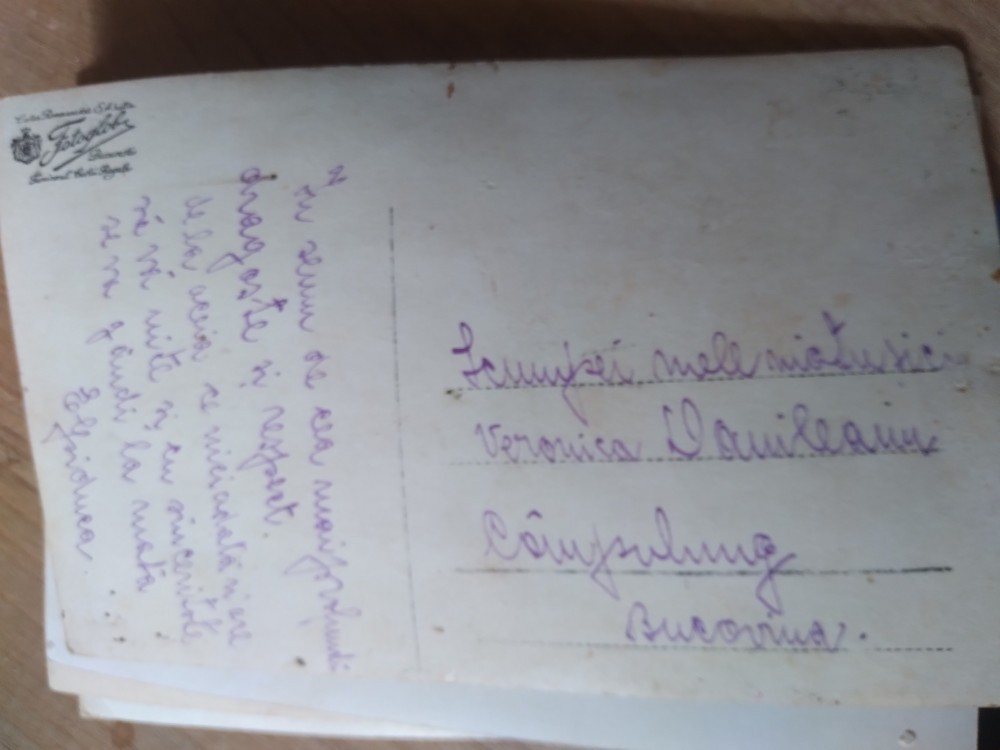 Fotoglob
În semn de cea mai profundă
dragoste și respect.
de la aceia ce niciodată n'are
să vă uite și cu sinceritate
se va gândi la mata
Scumpei mele mătușici
Veronica Danileanu
Câmpulung
Bucovina.